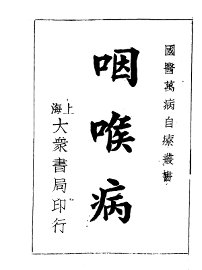 國醫萬病自療叢書
咽喉病
上海大衆書局印行